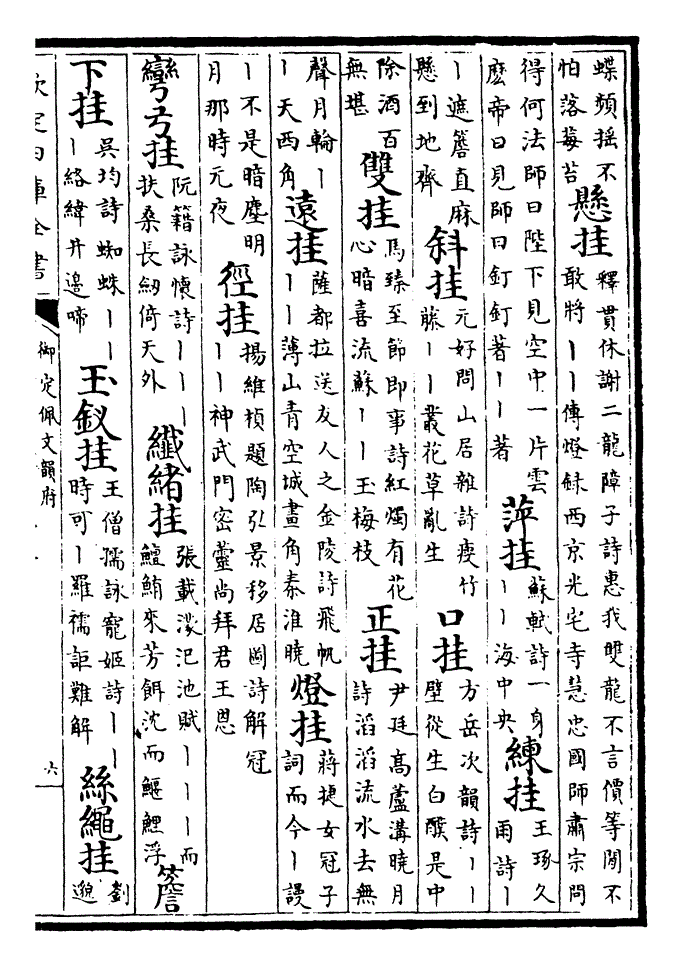 蝶頻搖不怕落莓苔懸挂釋貫休謝二龍障子詩惠我雙龍不言價等閒不敢將丨丨傳燈録西京光宅寺慧忠國師肅宗問
得何法師曰陛下見空中一片雲麽帝曰見師曰釘釘著丨丨著萍挂蘇軾詩一身丨丨海中央練挂王琢久雨詩丨
丨遮簷直麻懸到地齊斜挂元好問山居雜詩瘦竹藤丨丨叢花草亂生口挂方岳次韻詩丨丨壁從生白醭是中
除酒百無堪雙挂馬臻至節即事詩紅燭有花心暗喜流蘇丨丨玉梅枝正挂尹廷高蘆溝曉月詩滔滔流水去無
聲月輪丨丨天西角遠挂薩都拉送友人之金陵詩飛帆丨丨薄山青空城畫角秦淮曉燈挂蔣捷女冠子詞而今丨謾
丨不是暗塵明月那時元夜徑挂揚維楨題陶弘景移居圖詩解冠丨丨神武門密藁尚拜君王恩
彎弓挂阮籍詠懷詩丨丨丨扶桑長劒倚天外纖緒挂張載濛汜池賦丨丨丨而鱣鮪來芳餌沈而鰋鯉浮簷
下挂吳均詩蜘蛛丨丨丨絡緯井邉啼玉釵挂王僧孺詠寵姬詩丨丨時可丨羅襦詎難解絲繩挂劉邈
欽定四庫全書
御定佩文韻府
六